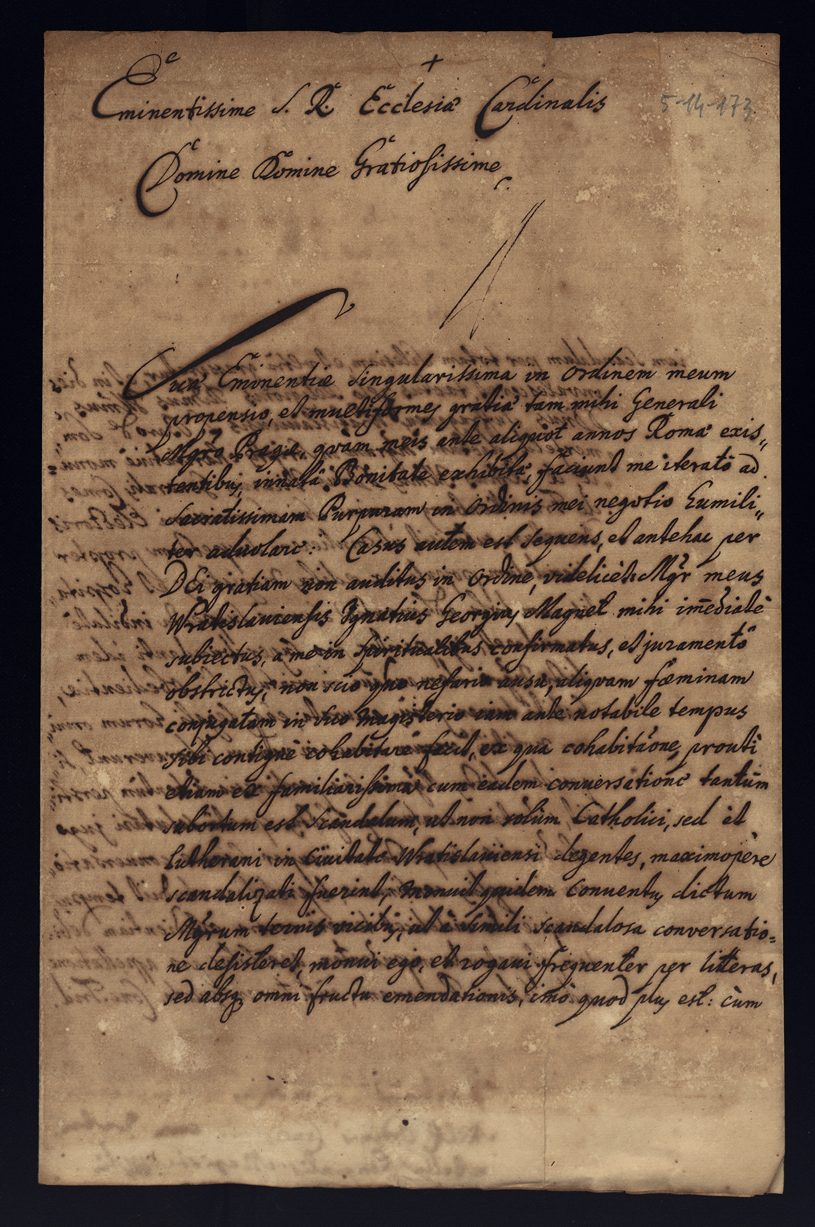 +
Eminentissime S. R. Ecclesiæ Cardinalis
5-14-173
Domine Domine Gratiosissime
Suæ Eminentiæ singularissima in Ordinem meum
propensio, et multiformes gratiæ tam mihi Generali
Mgro Pragæ, quam meis ante aliquot annos Romæ exis„
tentibus, innata Bonitate exhibitæ, faciunt me iterato ad
Sacratissimam Purpuram in Ordinis mei negotio humili„
ter advolare. Casus autem est sequens, et antehac per
DEi gratiam non auditus in Ordine, videlicèt Mgr meus
Wratislaviensis Ignatius Georgius Magnet mihi im̄ediatè
subiectus, à me in spiritualibus confirmatus, et juramento
obstrictus, non scio quo nefario ausu, aliquam fœminam
conjugatam in suo Magisterio iam ante notabile tempus
sibi contiguè cohabitare fecit, ex qua cohabitatione, prouti
etiam ex familiarissima cum eadem conversatione tantùm
subortum est scandalum, ut non solùm Catholici, sed et
Lutherani in Civitate Wratislaviensi degentes, maximopere
scandalizati fuerint, monuit quidem Conventus dictum
Mgrum ternis vicibus, ut à simili scandalosa conversatio=
ne desisteret, monui ego, et rogavi frequenter per litteras,
sed absq̨ omni fructu emendationis, imò quod plus est: cùm